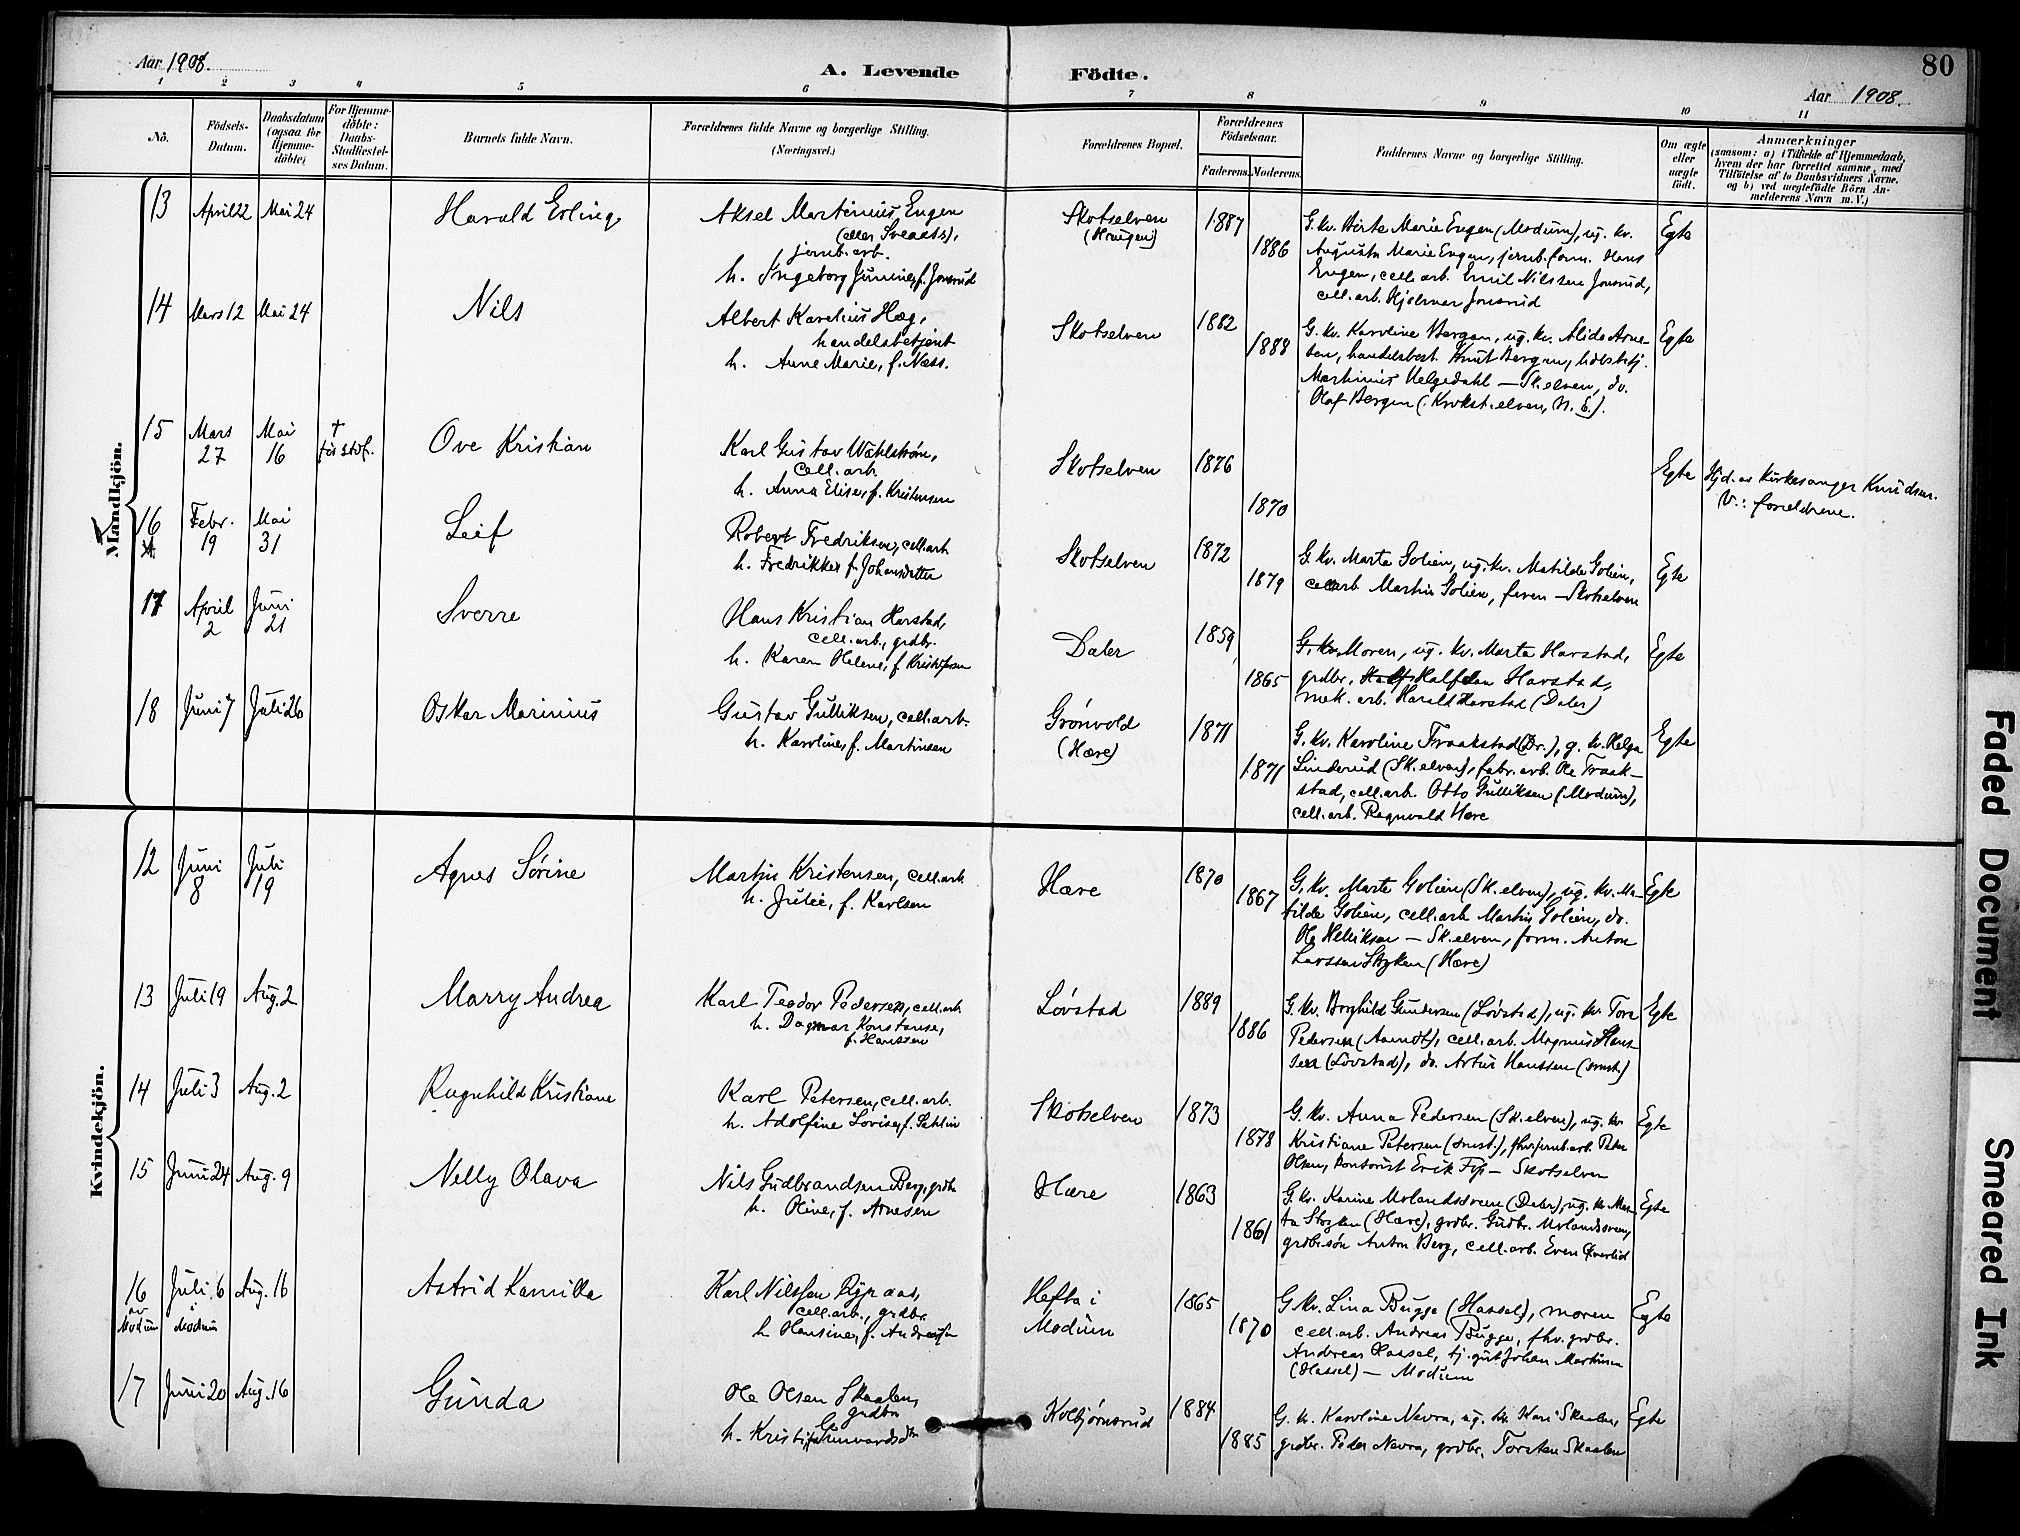 Aar 1908.
A. Levende Födte.
80
Aar 1908.
1 2 3 4 5 6 7 8 9 10 11
No.
Födsels-Datum.
Daabsdatum (ogsaa for Hjemme-döbte)
For Hjemme-döbte: Daabs-Stadfæstel-ses Datum.
Barnets fulde Navn.
Forældrenes fulde Navne og borgerlige Stilling. (Næringsvei.)
Forældrenes Bopæl.
Forældrenes Födselsaar.
Faderens. Moderens.
Faddernes Navne og borgerlige Stilling.
Om ægte eller uægte födt.
Anmærkninger
(saasom: a) i Tilfælde af Hjemmedaab,
hvem der har forrettet samme, med
Tilföielse af to Daabsvidners Navne,
og b) ved uægtefödte Börn An-
melderens Navn m. V.)
Mandkjön.
13 April 22 Mai 24 Harald Erling
Aksel Martinius Engen
(eller Sveaas),
jernb. arb.
h. Ingeborg Junine, f. Jonsrud
Skotselven
(Haugen)
1887
1886
G. kv. Birte Marie Engen (Modum), ug. kv.
Augusta Marie Engen, jernb. form. Hans
Engen, cell. arb. Emil Nilssen Jonsrud,
cell. arb. Hjalmar Jonsrud
Egte
14 Mars 12 Mai 24 Nils
Albert Karelius Hæg,
handelsbetjent
h. Anne Marie, f. Næss.
Skotselven
1882
1888
G. kv. Karoline Bergan, ug. kv. Alida Arne-
sen, handelsbest. Knut Bergan,
Martinius Helgedahl — Sk.elven, do.
Olaf Bergan (Krokst.elven, N. E.).
Egte
15 Mars 27 Mai 16
†
før stdf.
Ove Kristian
Karl Gustav Wahlstrøm,
cell. arb.
h. Anna Elise, f. Kristensen
Skotselven
1876
1870
Egte
Hjd. av kirkesanger Knudsen.
V.: forældrene.
16 Febr. 19 Mai 31 Leif
Robert Fredriksen, cell. arb.
h. Fredrikke, f. Johansdatter
Skotselven
1872
1879
G. kv. Marta Golien, ug. kv. Matilde Golien,
cell. arb. Martin Golien, faren — Skotselven
Egte
17 April 2 Juni 21 Sverre
Hans Kristian Harstad,
cell. arb., grdbr.
h. Karen Helene, f. Kristofersen
Daler
1859
1865
G. kv. Moren, ug. kv. Marta Harstad,
grdbr. Half Halfdan Harstad,
mek. arb. Harald Harstad (Daler)
Egte
18 Juni 7 Juli 26 Oskar Marinius
Gustav Gulliksen, cell. arb.
h. Karoline, f. Martinsen
Grønvold
(Hære)
1871
1871
G. kv. Karoline Fraakstad (Dr.), g. kv. Helga
Linderud (Sk.elven), fabr. arb. Ole Fraak-
stad, cell. arb. Otto Gulliksen (Modum),
cell. arb. Ragnvald Hære
Egte
Kvindekjön.
12 Juni 8 Juli 19 Agnes Sørine
Martin Kristensen, cell. arb.
h. Julie, f. Karlsen
Hære
1870
1867
G. kv. Marte Golien (Sk.elven), ug. kv. Ma-
tilde Golien, cell. arb. Martin Golien, do.
Ole Helliksen — Sk.elven, form. Anton
Larssen Stryken (Hære)
Egte
13 Juli 19 Aug. 2 Marry Andrea
Karl Teodor Pedersen, cell. arb.
h. Dagmar Konstanse,
f. Hanssen
Løvstad
1889
1886
G. kv. Borghild Gundersen (Løvstad), ug. kv. Tora
Pedersen (Aamot), cell. arb. Magnus Hans-
sen (Løvstad), do. Artur Hanssen (smst.)
Egte
14 Juli 3 Aug. 2 Ragnhild Kristiane
Karl Petersen, cell. arb.
h. Adolfine Lovise, f. Sahlin
Skotselven
1873
1878
G. kv. Anna Pedersen (Sk.elven), ug. kv.
Kristiane Petersen (smst.), fhv. jernb. arb. Peter
Olsen, kontorist Erik — Skotselven
Egte
15 Juni 24 Aug. 9 Nelly Olava
Nils Gudbrandsen Berg, grdbr.
h. Oline, f. Arnesen
Hære
1863
1861
G. kv. Karine Molandsveen (Daler), ug. kv. Mar-
ta Stryken (Hære), grdbr. Gudbr. Molandsveen,
grdbr. søn Anton Berg, cell. arb. Even
Egte
16 av Modum
Juli 6 i Modum
Aug. 16 Astrid Kamilla
Karl Nilssen Ryraas,
cell. arb., grdbr.
h. Hansine, f. Andreassen
Hefta i
Modum
1865
1870
G. kv. Lina Bugge (Hassel), moren
cell. arb. Andreas Bugge, fhv. grdbr.
Andreas Hassel, tj. gut Johan Martinsen
(Hassel) — Modum
Egte
17 Juni 20 Aug. 16 Gunda
Ole Olsen Skaalen,
grdbr.
h. Kristi Gunvardsdtr
Kolbjørnsrud
1884
1885
G. kv. Karoline Navra, ug. kv. Kari Skaalen,
grdbr. Peder Navra, grdbr. Torsten Skaalen
Egte
Faded Document
Smeared Ink